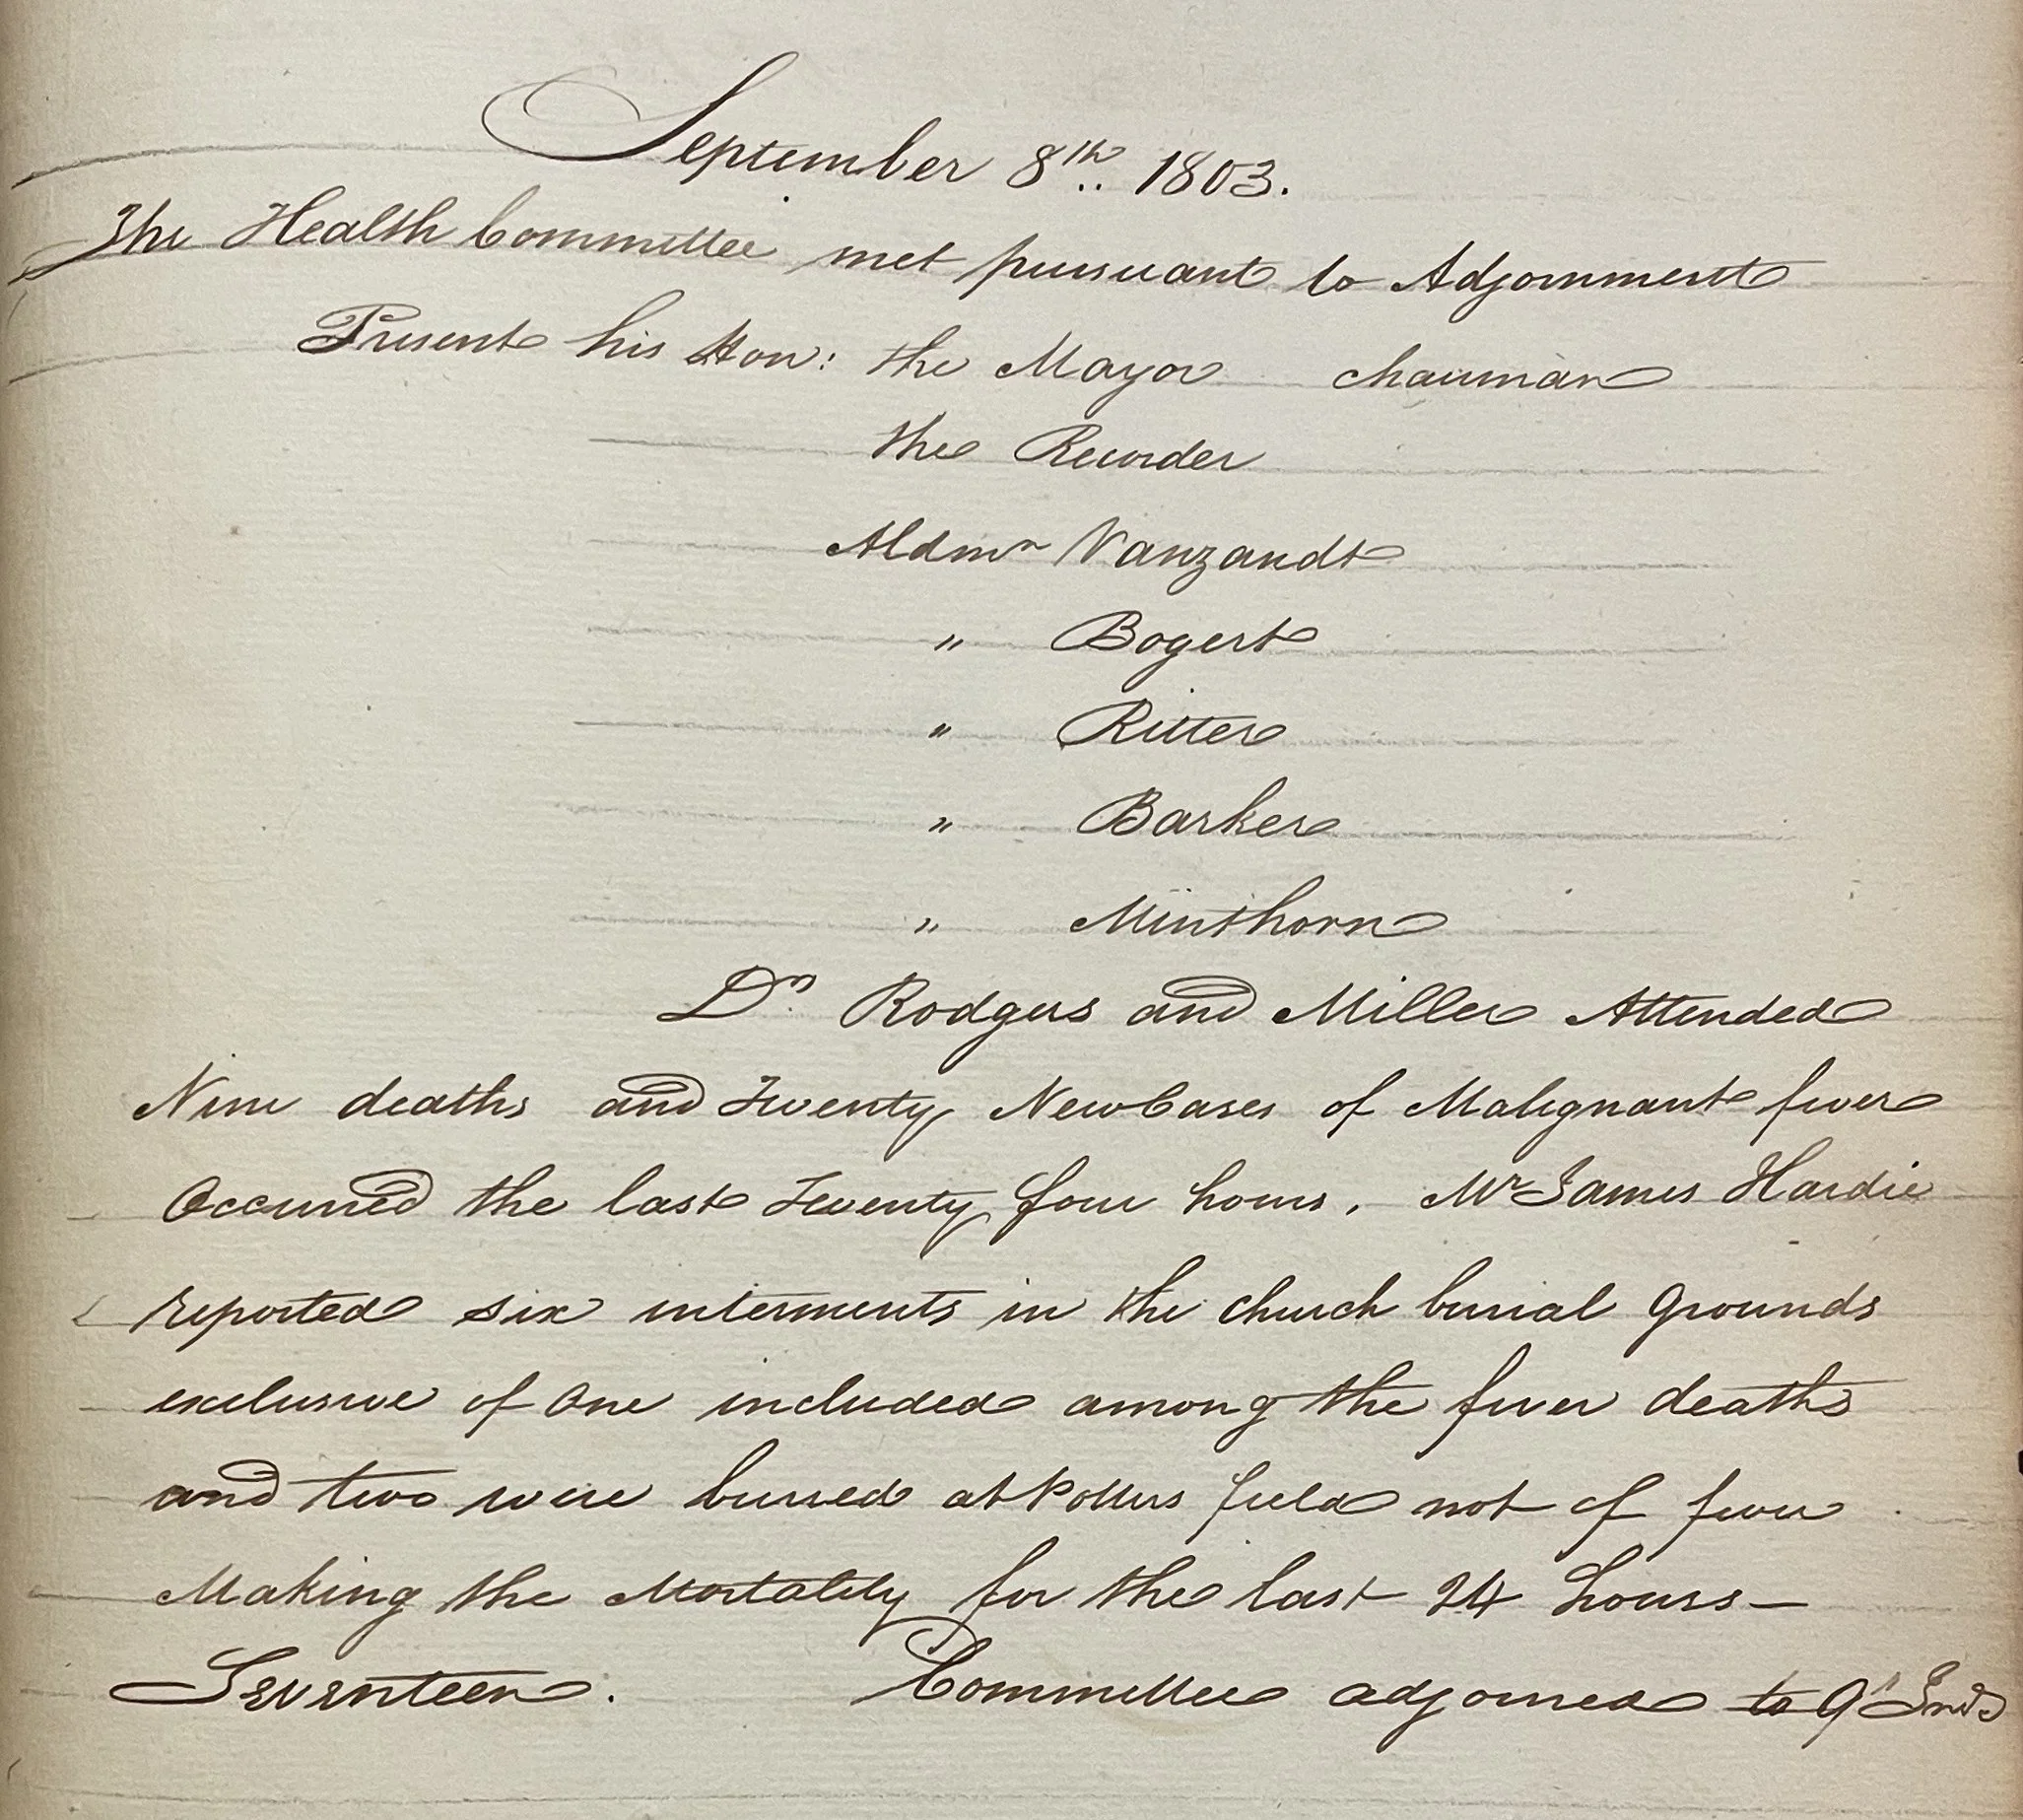 September 8th. 1803.
The Health Committee met pursuant to Adjornment
Present his Hon: the Mayor chairman
the Recorder
Aldmn Vanzandt
" Bogert
" Ritter
" Barker
" Minthorn
Drs Rodgers and Miller Attended
Nine deaths and Twenty New Cases of Malignant fever
Occurred the last Twenty four hours. Mr James Hardie
reported six interments in the church burial grounds
exclusive of One included among the fever deaths
and two were buried at Potters field not of fever
Making the Mortality for the last 24 hours —
Seventeen. Committee adjorned to 9th Inst